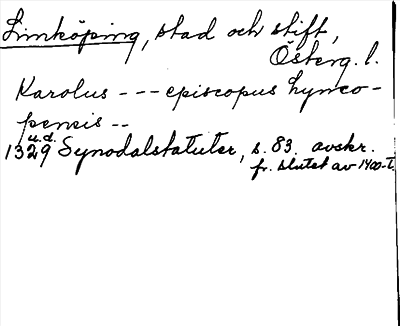 Linköping, stad och stift,
Österg. l.
Karolus - - - episcopus Lynco-
pensis - -
u.d.
1329 Synodalstatuter, s. 83. avskr.
fr. slutet av 1400-t.